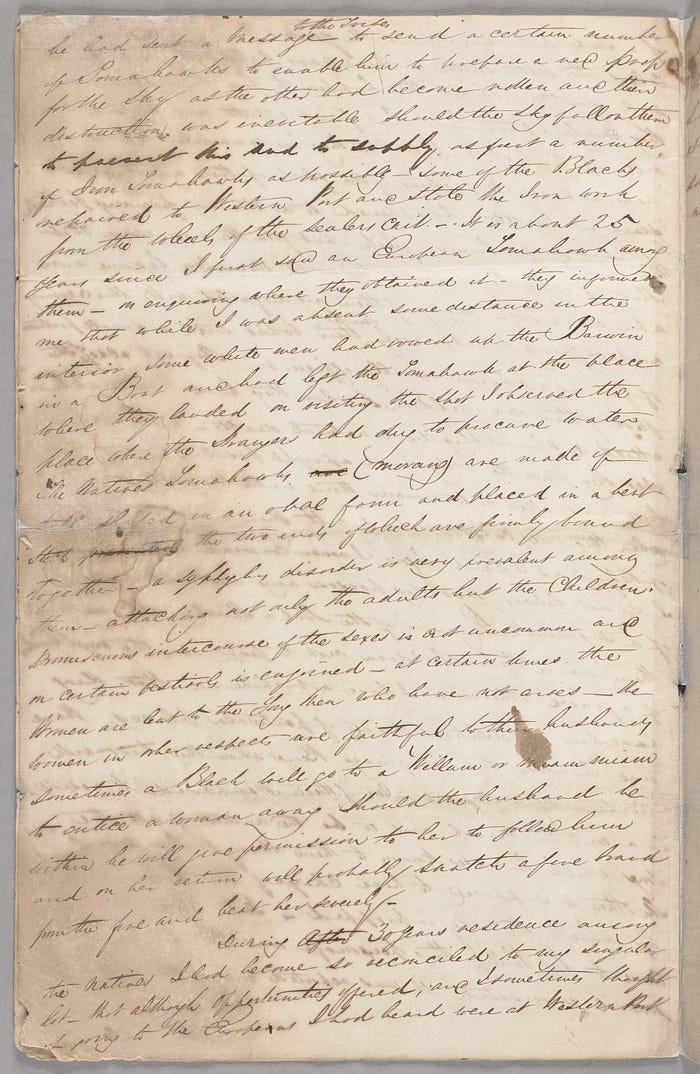 to the Tribes
he had sent a message to send a certain number
of Tomahawks to enable him to prepare a new prop
for the Sky as the other had become rotten and their
distruction was inevitable should the sky fall on them
to prevent this and to supply as great a number
of Iron Tomahawks as possible – some of the Blacks
repaired to Western Port and stole the Iron work
from the wheels of the sealers cart. – It is about 25
years since I first saw an European Tomahawk among
them – on enquiring where they obtained it – they informed
me that while I was absent some distance in the
interior some white men had rowed up the Barwin
in a Boat and had left the Tomahawk at the place
where they landed on visiting the spot I observed the
place where the Strangers had dug to procure water
The Natives Tomahawks are (merang) are made of
in an oval form and placed in a bent
the two ends of which are firmly bound
together – a disorder is very prevalent among
them – attacking not only the adults but the Children.
promiscuous intercourse of the sexes is not uncommon and
on certain festivals is enjoined – at certain times the
Women are lent to the Young Men who have not wives – the
women in other respects are faithful to their husbands
sometimes a Black will go to a Willum or miam miam
to entice a woman away should the husband be
within he will give permission to her to follow him
and on her return will probably snatch a fire brand
from the fire and beat her severely –
During After 30 years residence among
the natives I had become so reconciled to my singular
lot – that although opportunities offered, and I sometimes thought
of going to the Europeans I had heard were at Western Port